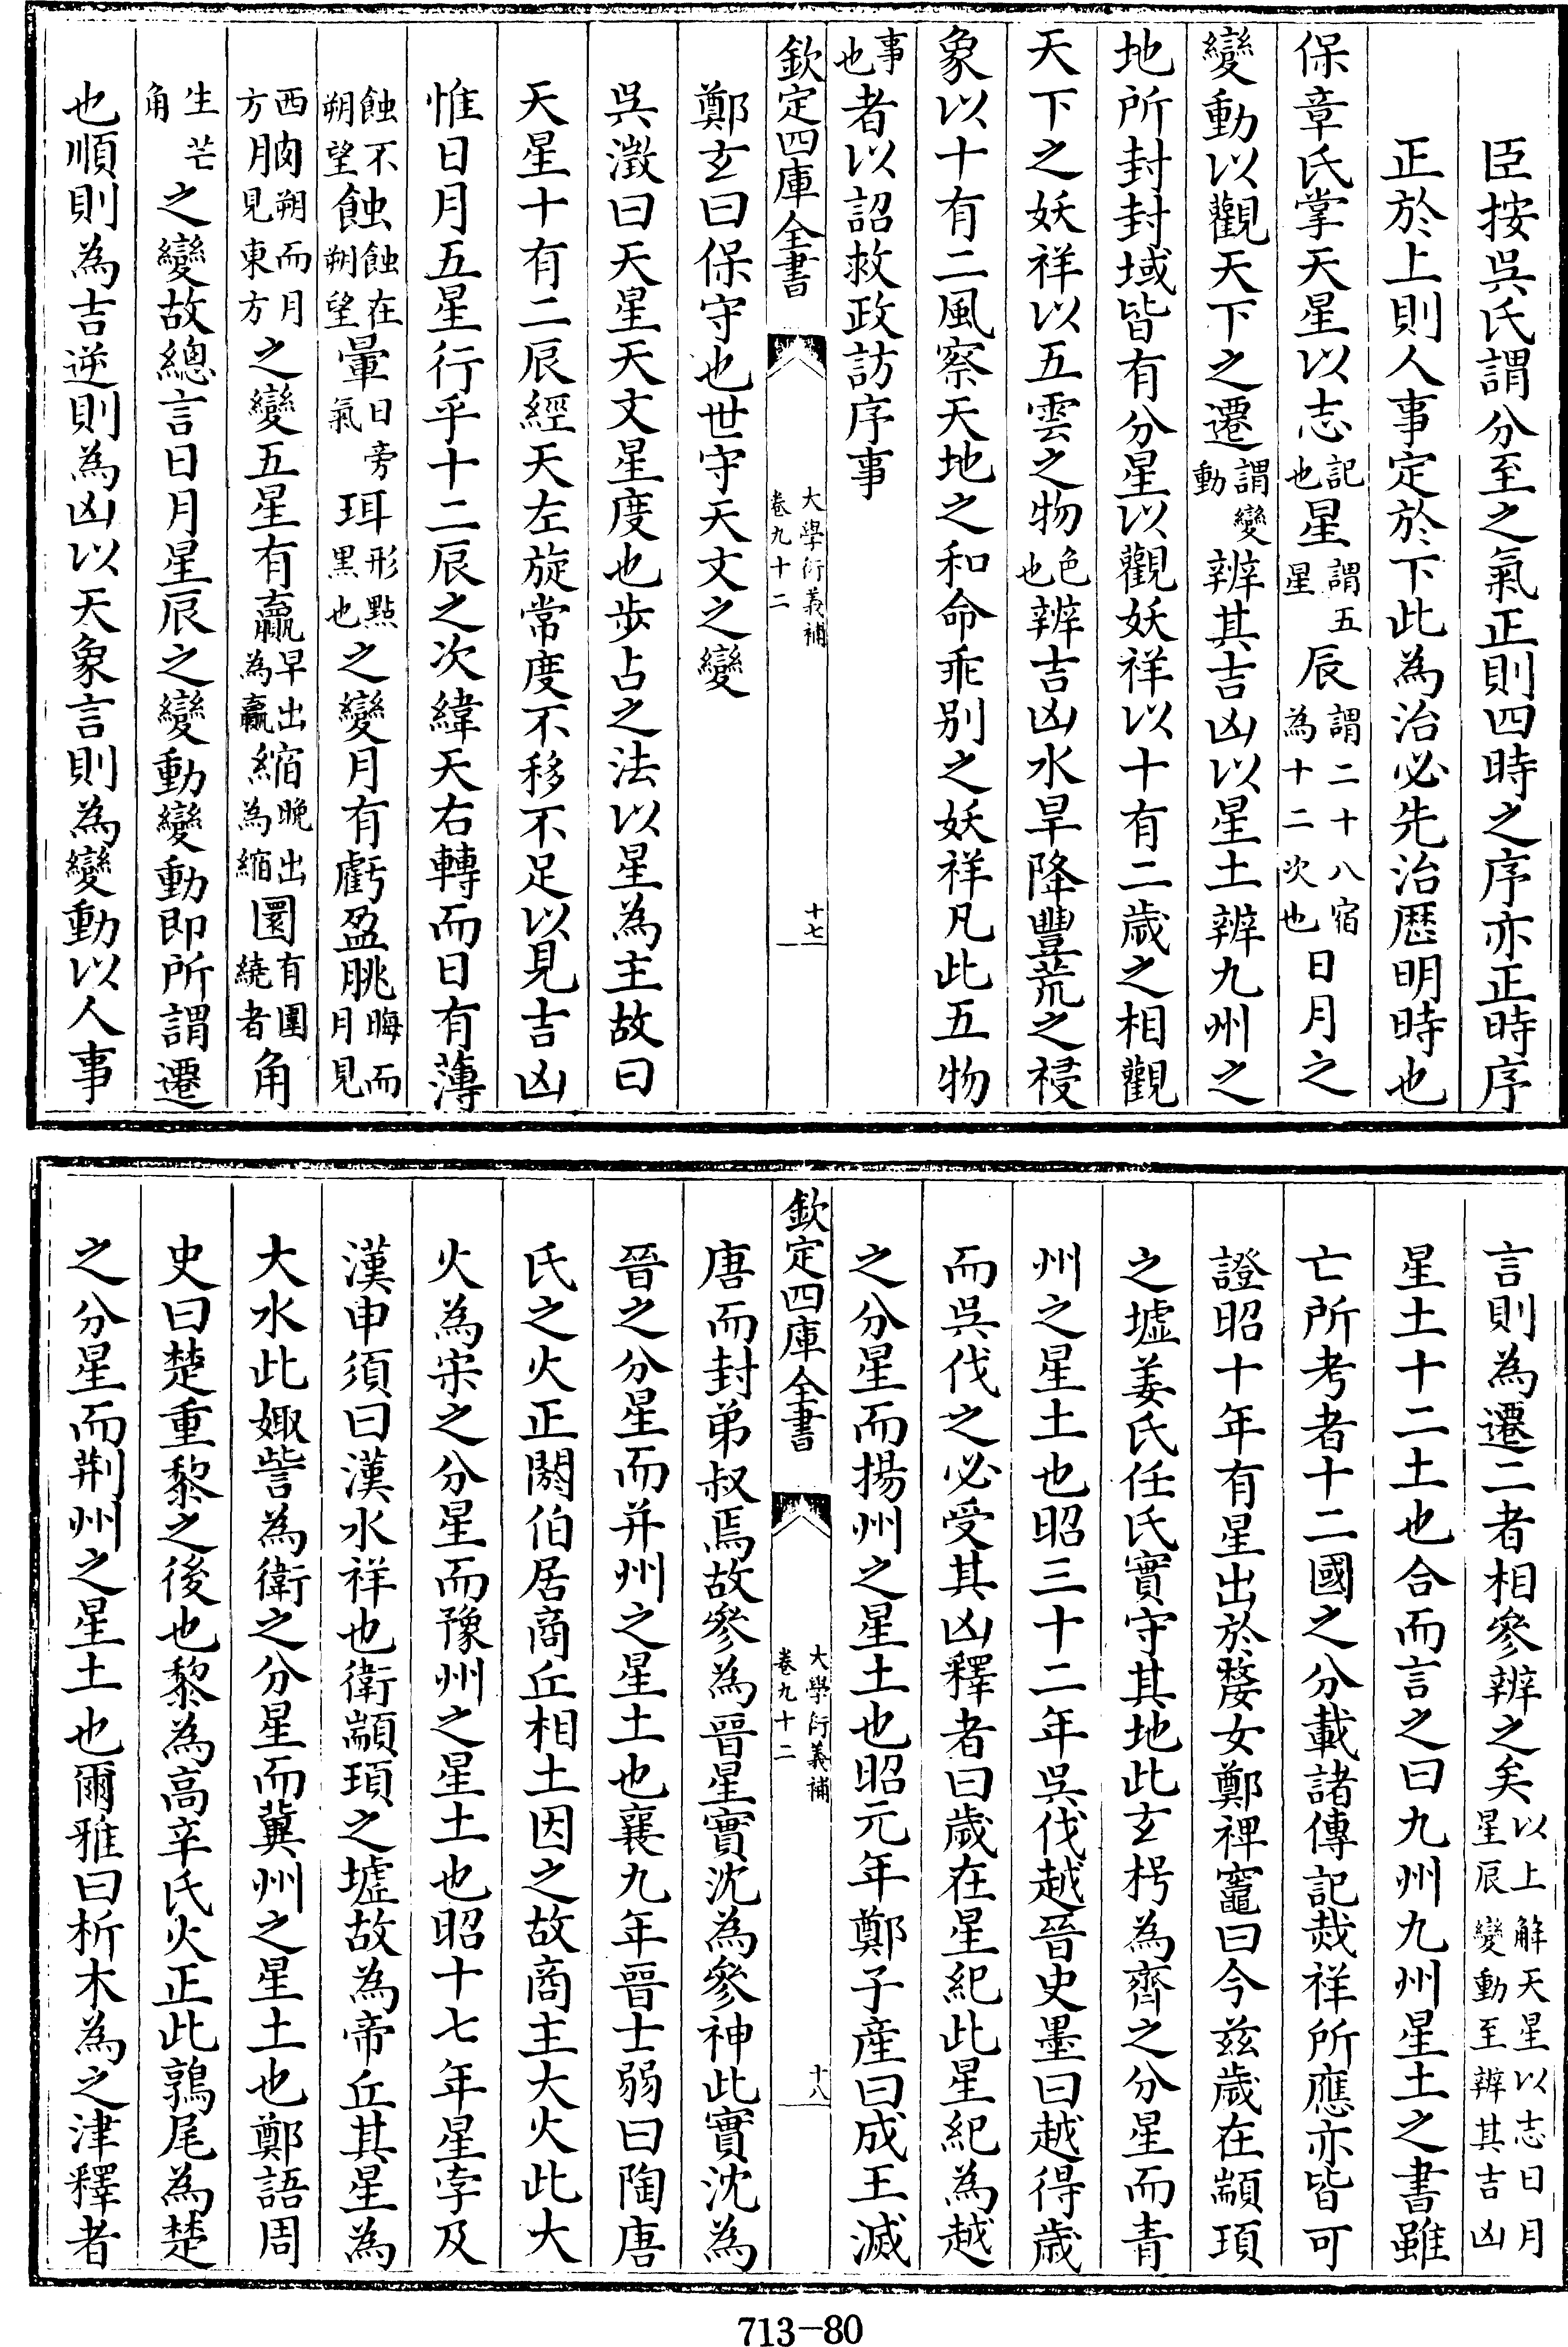 臣按吳氏謂分至之氣正則四時之序亦正時序
正於上則人事定於下此為治必先治厯明時也
保章氏掌天星以志記也星謂五星辰謂二十八宿為十二次也日月之
變動以觀天下之遷謂變動辨其吉凶以星土辨九州之
地所封封域皆有分星以觀妖祥以十有二歲之相觀
天下之妖祥以五雲之物色也辨吉凶水旱降豐荒之祲
象以十有二風察天地之和命乖别之妖祥凡此五物
事也者以詔救政訪序事
欽定四庫全書
大學衍義補
卷九十二
十七
鄭玄曰保守也世守天文之變
吳澂曰天星天文星度也步占之法以星為主故曰
天星十有二辰經天左旋常度不移不足以見吉凶
惟日月五星行乎十二辰之次緯天右轉而日有薄
蝕不朔望蝕蝕在朔望暈日旁氣珥形點黑也之變月有虧盈朓晦而月見
西方朒朔而月見東方之變五星有贏早出為贏縮晚出為縮圜有圍繞者角
生芒角之變故總言日月星辰之變動變動即所謂遷
也順則為吉逆則為凶以天象言則為變動以人事
言則為遷二者相參辨之矣以上解天星以志日月星辰變動至辨其吉凶
星土十二土也合而言之曰九州九州星土之書雖
亡所考者十二國之分載諸傳記烖祥所應亦皆可
證昭十年有星出於婺女鄭裨竈曰今兹歲在顓頊
之墟姜氏任氏實守其地此玄枵為齊之分星而青
州之星土也昭三十二年吳伐越晉史墨曰越得歲
而吳伐之必受其凶釋者曰歲在星紀此星紀為越
之分星而揚州之星土也昭元年鄭子產曰成王滅
欽定四庫全書
大學衍義補
卷九十二
十八
唐而封弟叔焉故參為晉星實沈為參神此實沈為
晉之分星而并州之星土也襄九年晉士弱曰陶唐
氏之火正閼伯居商丘相土因之故商主大火此大
火為宋之分星而豫州之星土也昭十七年星孛及
漢申須曰漢水祥也衛顓頊之墟故為帝丘其星為
大水此娵訾為衛之分星而冀州之星土也鄭語周
史曰楚重黎之後也黎為高辛氏火正此鶉尾為楚
之分星而荆州之星土也爾雅曰析木為之津釋者
713-80